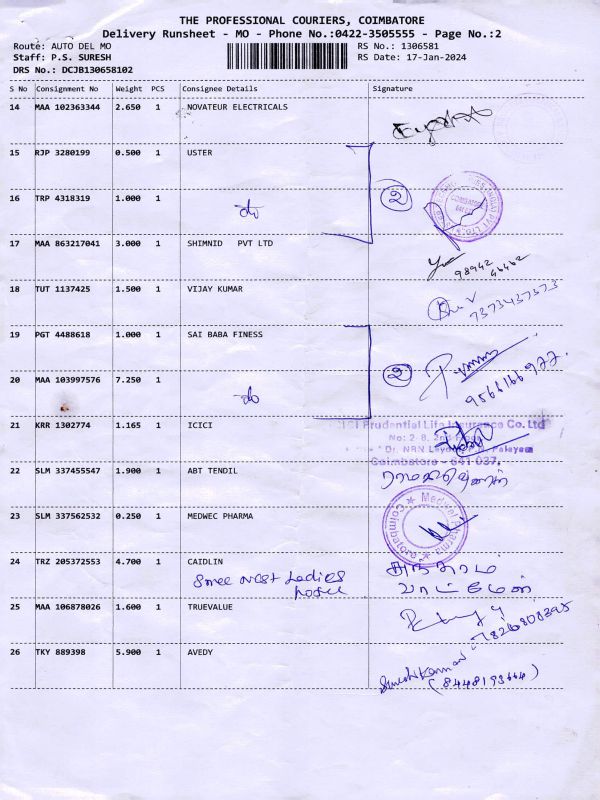 THE PROFESSIONAL COURIERS, COIMBATORE
Delivery Runsheet - MO - Phone No.:0422-3505555 - Page No.:2
Route: AUTO DEL MO RS No.: 1306581
Staff: P.S. SURESH RS Date: 17-Jan-2024
DRS No.: DCJB130658102
S No Consignment No Weight PCS Consignee Details Signature
14 MAA 102363344 2.650 1 NOVATEUR ELECTRICALS
15 RJP 3280199 0.500 1 USTER
2
16 TRP 4318319 1.000 1 do
17 MAA 863217041 3.000 1 SHIMNID PVT LTD
98942 46462
18 TUT 1137425 1.500 1 VIJAY KUMAR
7373437373
19 PGT 4488618 1.000 1 SAI BABA FINESS
2
20 MAA 103997576 7.250 1 do
9566166977.
21 KRR 1302774 1.165 1 ICICI
ICICI Prudential Life Insurance Co. Ltd
No: 2, 8, 2nd
Dr. NRN Layout Palayam
Coimbatore - 641 037.
22 SLM 337455547 1.900 1 ABT TENDIL
23 SLM 337562532 0.250 1 MEDWEC PHARMA
Medwel Pharma
Coimbatore
24 TRZ 205372553 4.700 1 CAIDLIN
Shree Nest Ladies
hostel
25 MAA 106878026 1.600 1 TRUEVALUE
7826808395
26 TKY 889398 5.900 1 AVEDY
Sureshkannan
(8448193664)